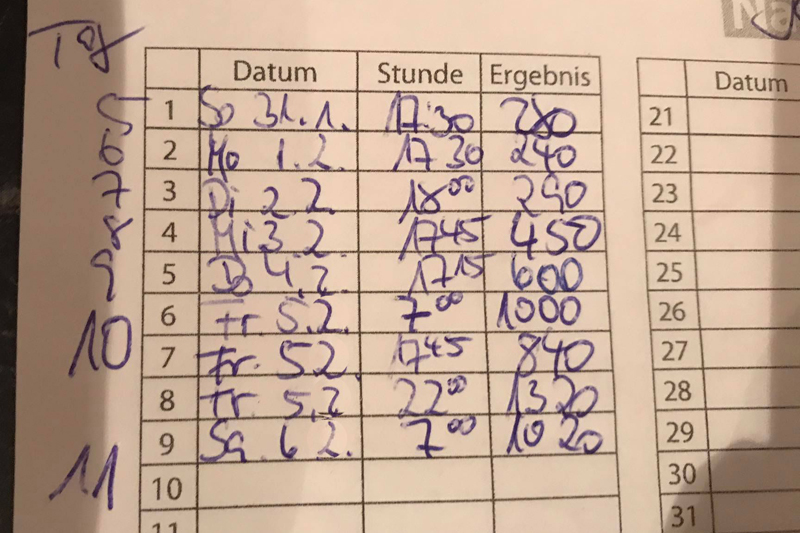 Na
Tag
Datum Stunde Ergebnis Datum
5 1 So 31.1. 17:30 280 21
6 2 Mo 1.2. 17 30 240 22
7 3 Di 2 2 18 00 290 23
8 4 Mi 3 2 17 45 450 24
9 5 Do 4.2. 17 15 600 25
10 6 Fr. 5.2. 7 00 1000 26
7 Fr. 5 2. 17 45 840 27
8 Fr. 5.2 22 00 1320 28
11 9 Sa. 6 2. 7 00 1020 29
10 30
11 31